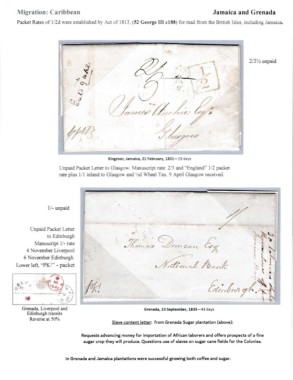 Migration: Caribbean
Jamaica and Grenada
Packet Rates of 1/2d were established by Act of 1813, (52 George III c188) for mail from the British Isles, including Jamaica.
2/3½ unpaid
1/2
James
Esq
Glasgow
Kingston, Jamaica, 21 February, 1835 – 48 days
Unpaid Packet Letter to Glasgow: Manuscript rate 2/3 and "England" 1/2 packet
rate plus 1/1 inland to Glasgow and ½d Wheel Tax. 9 April Glasgow received.
1/- unpaid
Unpaid Packet Letter
to Edinburgh
Manuscript 1/- rate
4 November Liverpool
6 November Edinburgh
Lower left, "PK?" – packet
Grenada, Liverpool and
Edinburgh transits
Reverse at 50%
Thomas Duncan Esq
National Bank
Edinburgh
Grenada, 23 September, 1835 – 43 days
Slave content letter: from Grenada Sugar plantation (above):
Requests advancing money for importation of African laborers and offers prospects of a fine
sugar crop they will produce. Questions use of slaves on sugar cane fields for the Colonies.
In Grenada and Jamaica plantations were successful growing both coffee and sugar.